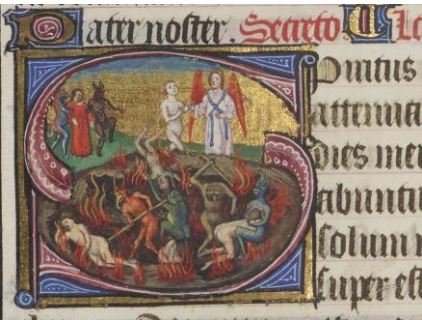 Pater noster. Secreto.
Spiritus
attenua
dies mei
abuntu
solum
super est